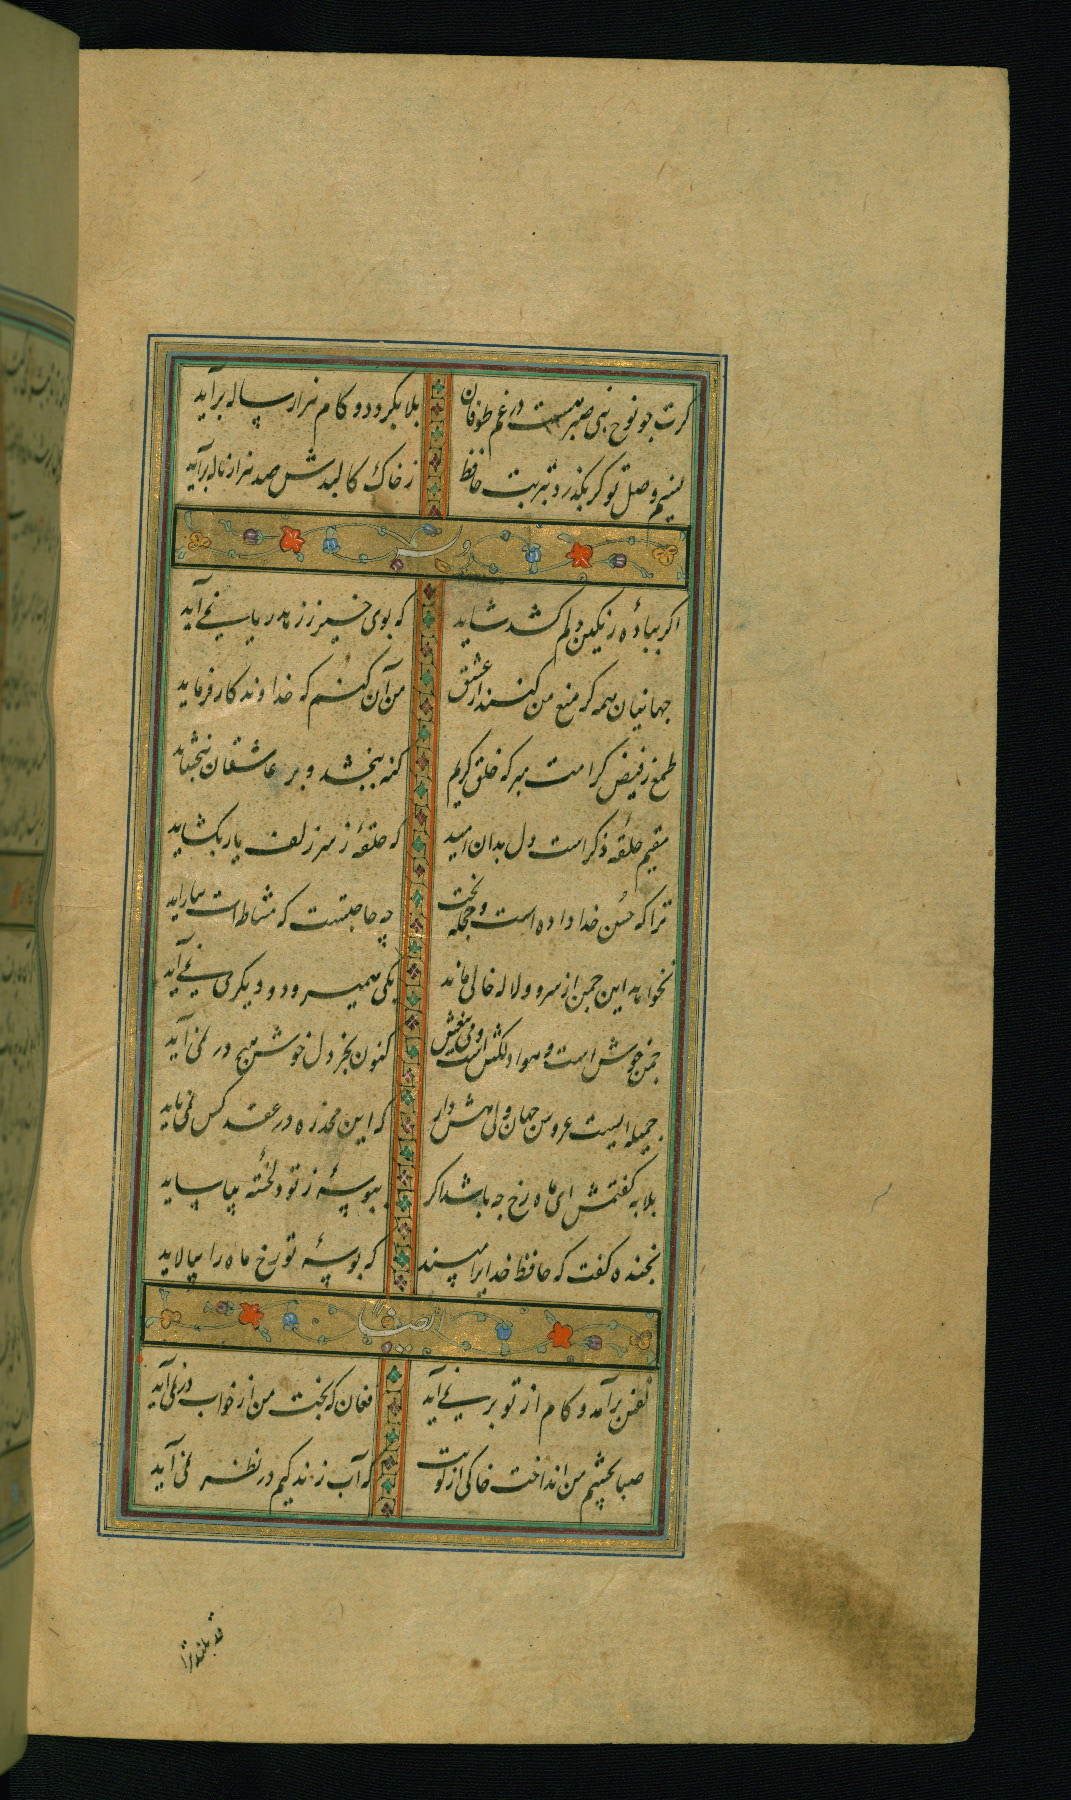 کرت چو نوح نبی صبر هست در غم طوفان بلا بگردد و کام هزار ساله برآید
نسیم وصل تو کر بگذرد بتربت حافظ ز خاک کالبدش صد هزار ناله برآید
وله
اکر بباده رنکین دلم کشد شاید که بوی خیر ز زهد ریا نمی آید
جهانیان همه کر منع من کنند از عشق من آن کنم که خداوندکار فرماید
طمع ز فیض کرامت مبر که خلق کریم کنه ببخشد و بر عاشقان ببخشاید
مقیم حلقهٔ ذکر است دل بدان امید که حلقهٔ ز سر زلف یار بکشاید
ترا که حسن خدا داده است و حجله بخت چه حاجتست که مشاطه ات بیاراید
نخواهد این چمن از سرو و لاله خالی ماند یکی همیرود و دیکری می آید
چمن خوش است و هوا دلکش است و می بیغش کنون بجز دل خوش هیچ در نمی آید
جمیله ایست عروس جهان ولی هش دار که این مخدره در عقد کس نمی آید
بلابه کفتمش ای ماه رخ چه باشد اکر ببوسهٔ ز تو دلخستهٔ بیاساید
بخنده کفت که حافظ خدایرا مپسند که بوسهٔ تو رخ ماه را بیالاید
ایضا
نفس برآمد و کام از تو بر نمی آید فغان که بخت من از خواب در نمی آید
صبا بچشم من انداخت خاکی از کویت که آب زندکیم در نظر نمی آید
قد بلند ترا